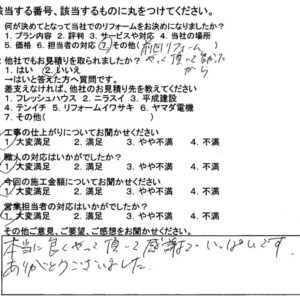 該当する番号、該当するものに丸をつけてください。
何が決めてとなって当社でのリフォームをお決めになりましたか?
1. プラン内容 2. 評判 3. サービスや対応 4. 当社の場所
5. 価格 6. 担当者の対応 7. その他( 前回リフォーム
やって頂いて良かった
から
他社でもお見積りを取られましたか?
1. はい 2. いいえ
→はいと答えた方へ質問です。
差支えなければ、他社のお見積り先を教えてください
1. フレッシュハウス 2. ニラスイ 3. 平成建設
4. テンイチ 5. リフォームイワサキ 6. ヤマダ電機
7. その他(
工事の仕上がりについてお聞かせください
1. 大変満足 2. 満足 3. やや不満 4. 不満
職人の対応はいかがでしたか?
1. 大変満足 2. 満足 3. やや不満 4. 不満
今回の施工金額についてお聞かせください
1. 大変満足 2. 満足 3. やや不満 4. 不満
営業担当者の対応はいかがでしたか?
1. 大変満足 2. 満足 3. やや不満 4. 不満
その他ご意見、ご要望、ご感想をお聞かせください。
本当に良くやって頂いて感謝でいっぱいです。
ありがとうございました。